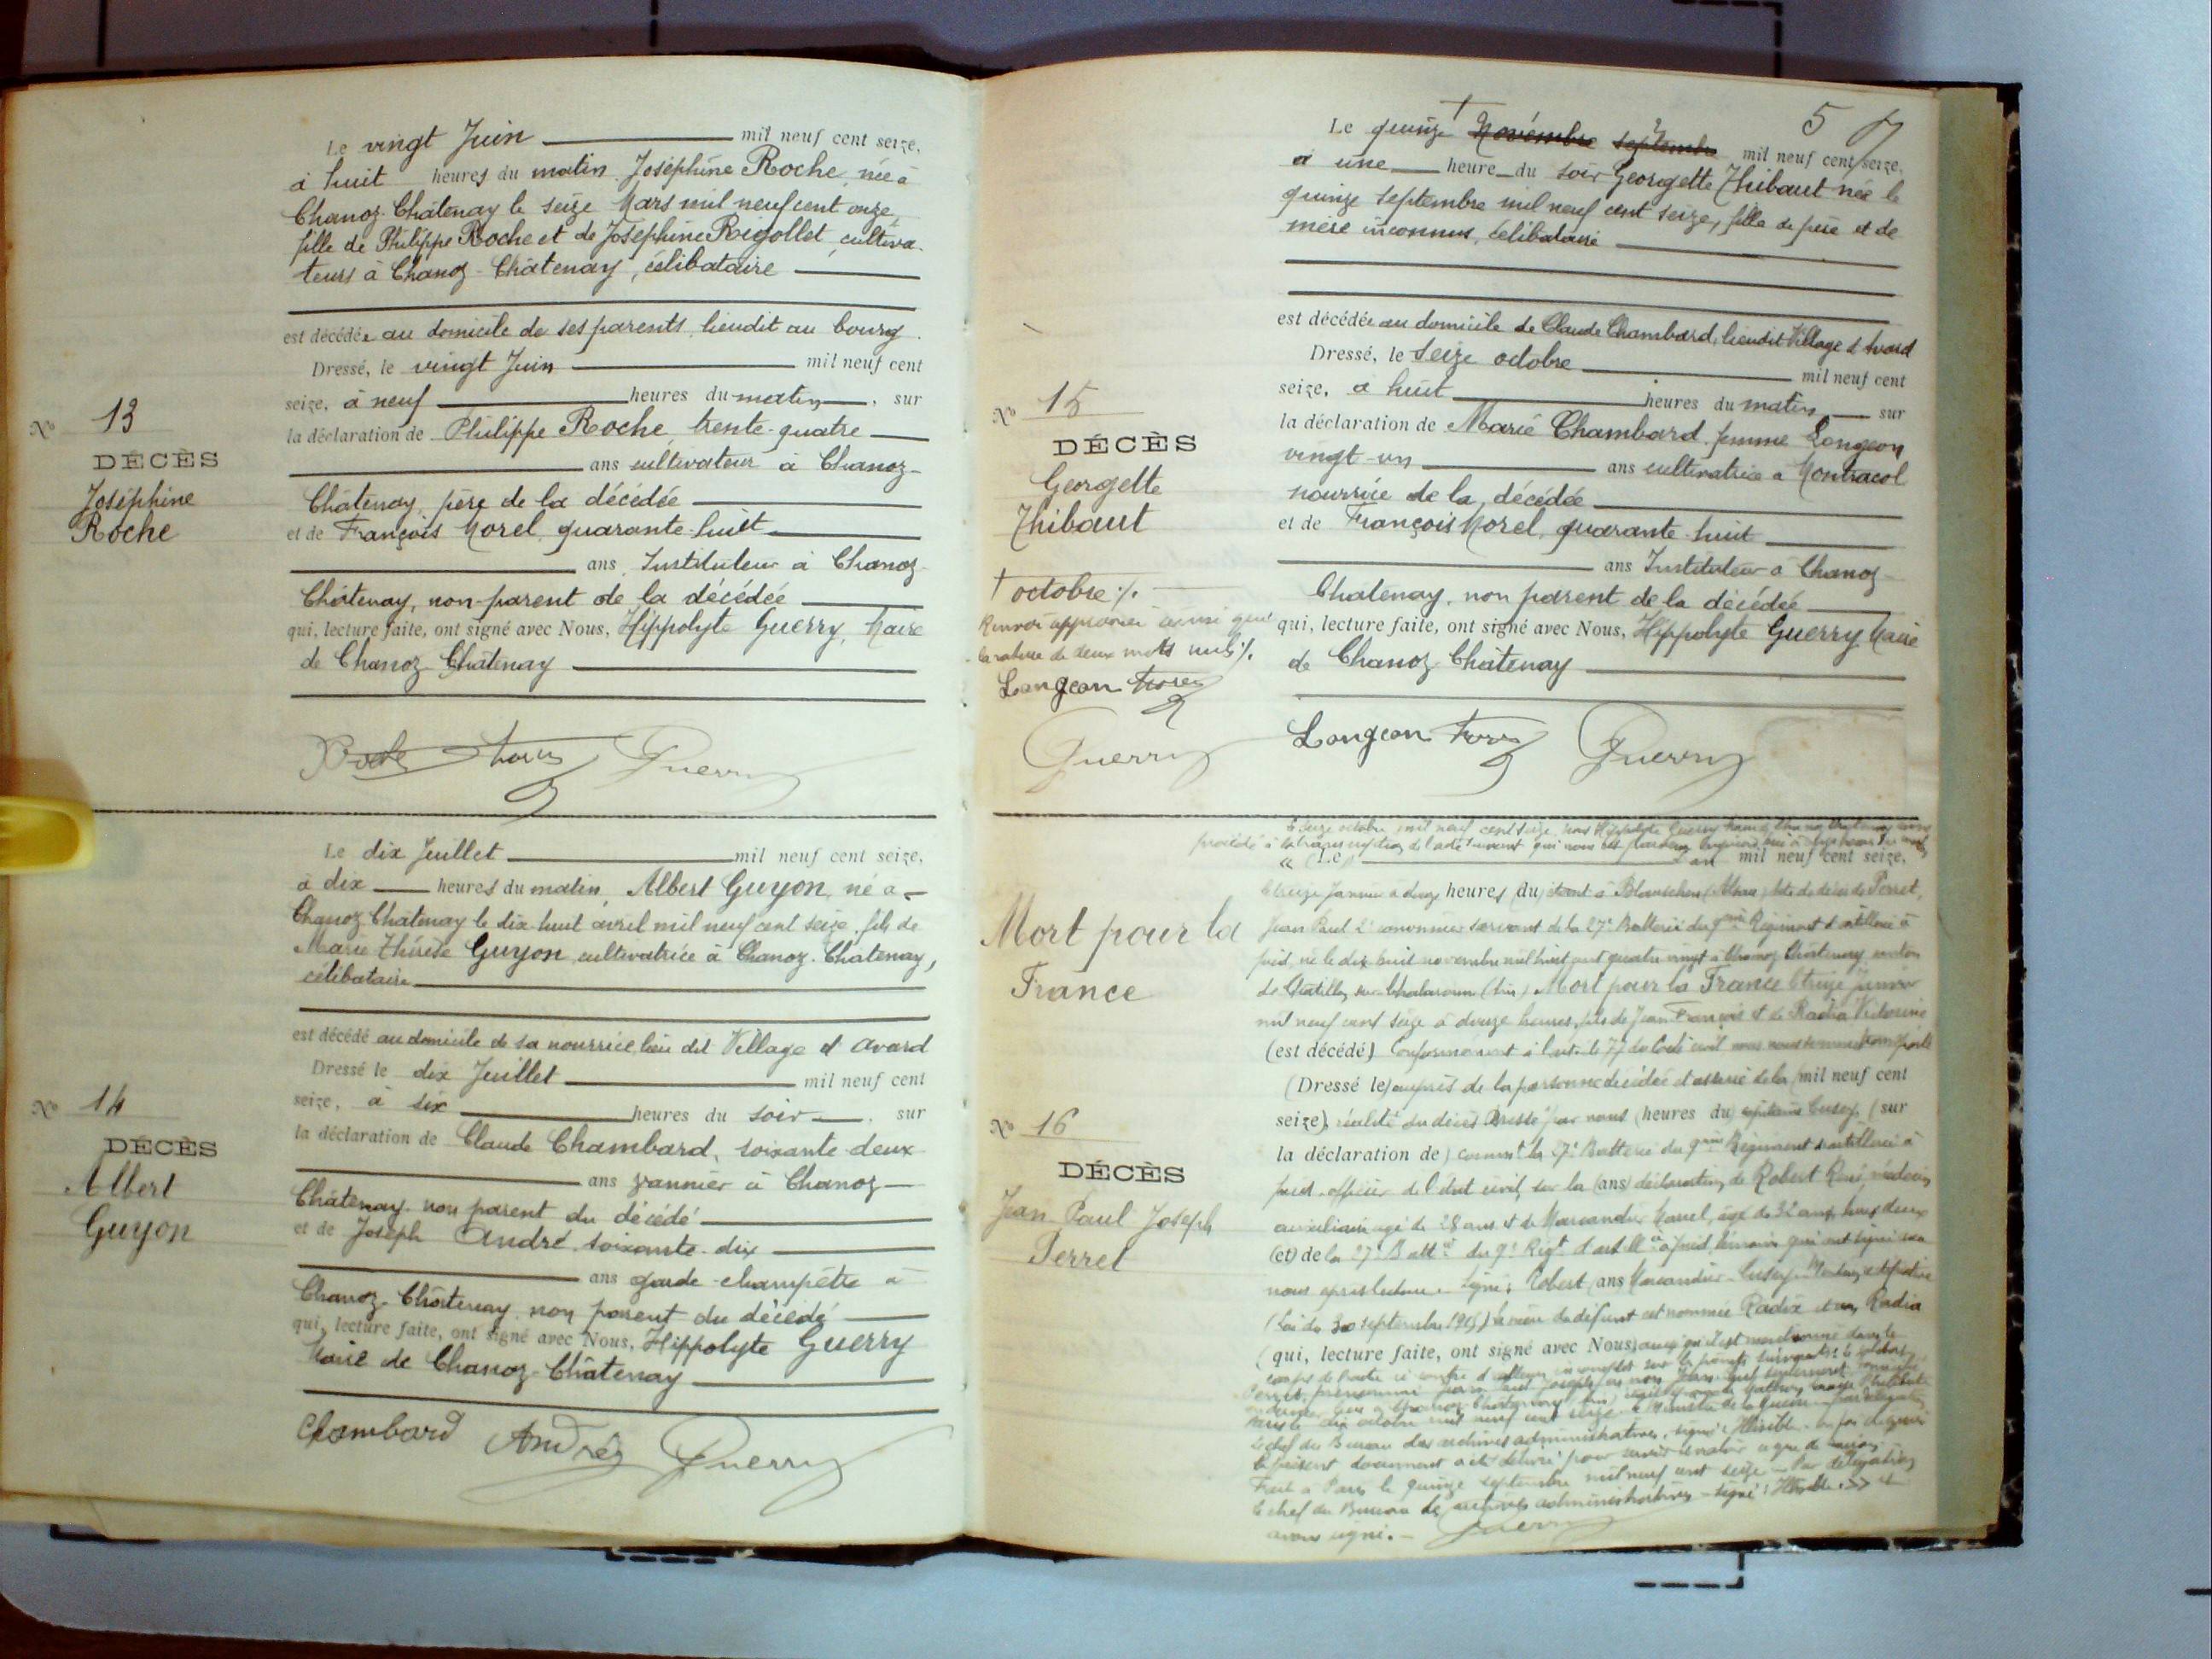 Le vingt Juin mil neuf cent seize,
à huit heures du matin, Joséphine Roche, née à
Chanoz-Châtenay le seize Mars mil neuf cent onze,
fille de Philippe Roche et de Joséphine Rigollet, cultiva-
teurs à Chanoz-Châtenay, célibataire
est décédée au domicile de ses parents, lieudit au bourg.
Dressé, le vingt Juin mil neuf cent
seize, à neuf heures du matin, sur
la déclaration de Philippe Roche, trente-quatre
ans cultivateur à Chanoz-
Châtenay, père de la décédée
et de François Morel, quarante-huit
ans, Instituteur à Chanoz-
Châtenay, non-parent de la décédée
qui, lecture faite, ont signé avec Nous, Hippolyte Guerry, Maire
de Chanoz-Châtenay
No 13
DÉCÈS
Joséphine
Roche
Roche Morel Guerry
Le dix Juillet mil neuf cent seize,
à dix heures du matin, Albert Guyon, né à
Chanoz-Châtenay le dix-huit avril mil neuf cent seize, fils de
Marie Thérèse Guyon, cultivatrice à Chanoz-Châtenay,
célibataire
est décédé au domicile de sa nourrice, lieu dit Village d'Avard
Dressé le dix Juillet mil neuf cent
seize, à six heures du soir, sur
la déclaration de Claude Chambard, soixante-deux
ans vannier à Chanoz-
Châtenay, non parent du décédé
et de Joseph André, soixante-dix
ans garde-champêtre à
Chanoz-Châtenay, non parent du décédé
qui, lecture faite, ont signé avec Nous, Hippolyte Guerry
Maire de Chanoz-Châtenay
No 14
DÉCÈS
Albert
Guyon
Chambard André Guerry
5
Le quinze † Novembre septembre mil neuf cent seize,
à une heure du soir Georgette Thibaut née le
quinze septembre mil neuf cent seize, fille de père et de
mère inconnus, célibataire
est décédée au domicile de Claude Chambard, lieudit Village d'Avard
Dressé, le seize octobre mil neuf cent
seize, à huit heures du matin sur
la déclaration de Marie Chambard, femme Longeon
vingt-un ans cultivatrice à Montracol
nourrice de la décédée
et de François Morel, quarante-huit
ans Instituteur à Chanoz-
Châtenay, non parent de la décédée
qui, lecture faite, ont signé avec Nous, Hippolyte Guerry Maire
de Chanoz-Châtenay
No 15
DÉCÈS
Georgette
Thibaut
† octobre ٪.
Renvoi approuvé ainsi que
la rature de deux mots nuls ٪.
Longeon Morel
Guerry
Longeon Morel Guerry
Le seize octobre mil neuf cent seize, nous Hippolyte Guerry
procédé à la transcription de l'acte suivant qui nous est
« (Le) L'an mil neuf cent seize,
le treize Janvier à douze heures (du) étant à acte de décès de Perret,
Jean Paul 2e canonnier servant de la 27e Batterie du 9ème Régiment d'artillerie à
pied, né le dix huit novembre mil huit cent quatre vingt à Chanoz-Châtenay, canton
de Châtillon-sur-Chalaronne (Ain) Mort pour la France le treize janvier
mil neuf cent seize à douze heures, fils de Jean François et de Radia Victorine
(est décédé) Conformément à l'article 77 du Code civil nous nous sommes transporté
(Dressé le) auprès de la personne décédée et assuré de la (mil neuf cent
seize), réalité du décès Dressé par nous (heures du) capitaine (sur
la déclaration de) la 27e Batterie du 9ème Régiment d'artillerie à
pied, officier de l'état civil, sur la (ans) déclaration de Robert René, médecin
auxiliaire, âgé de 28 ans et de Marcandier Marcel, âgé de 32 ans, tous deux
(et) de la 27e Batt.ie du 9e Régt d'artillie à pied, témoins qui ont signé avec
nous après lecture. Signé: Robert (ans Marcandier
(Loi du 30 septembre 1915) la mère du défunt est nommée Radix et non Radia
(qui, lecture faite, ont signé avec Nous,) ainsi qu'il est mentionné dans le
corps de l'acte ci-contre
Paris le dix octobre mil neuf cent seize le Ministre de la Guerre par délégation
le chef du Bureau des archives administratives, signé: Illisible.
le présent document a été délivré pour servir et valoir ce que de raison
Fait à Paris le quinze septembre mil neuf cent seize – Par délégation
le chef du Bureau des archives administratives – signé: Illisible. » et
avons signé. – Guerry
Mort pour la
France
No 16
DÉCÈS
Jean Paul Joseph
Perret